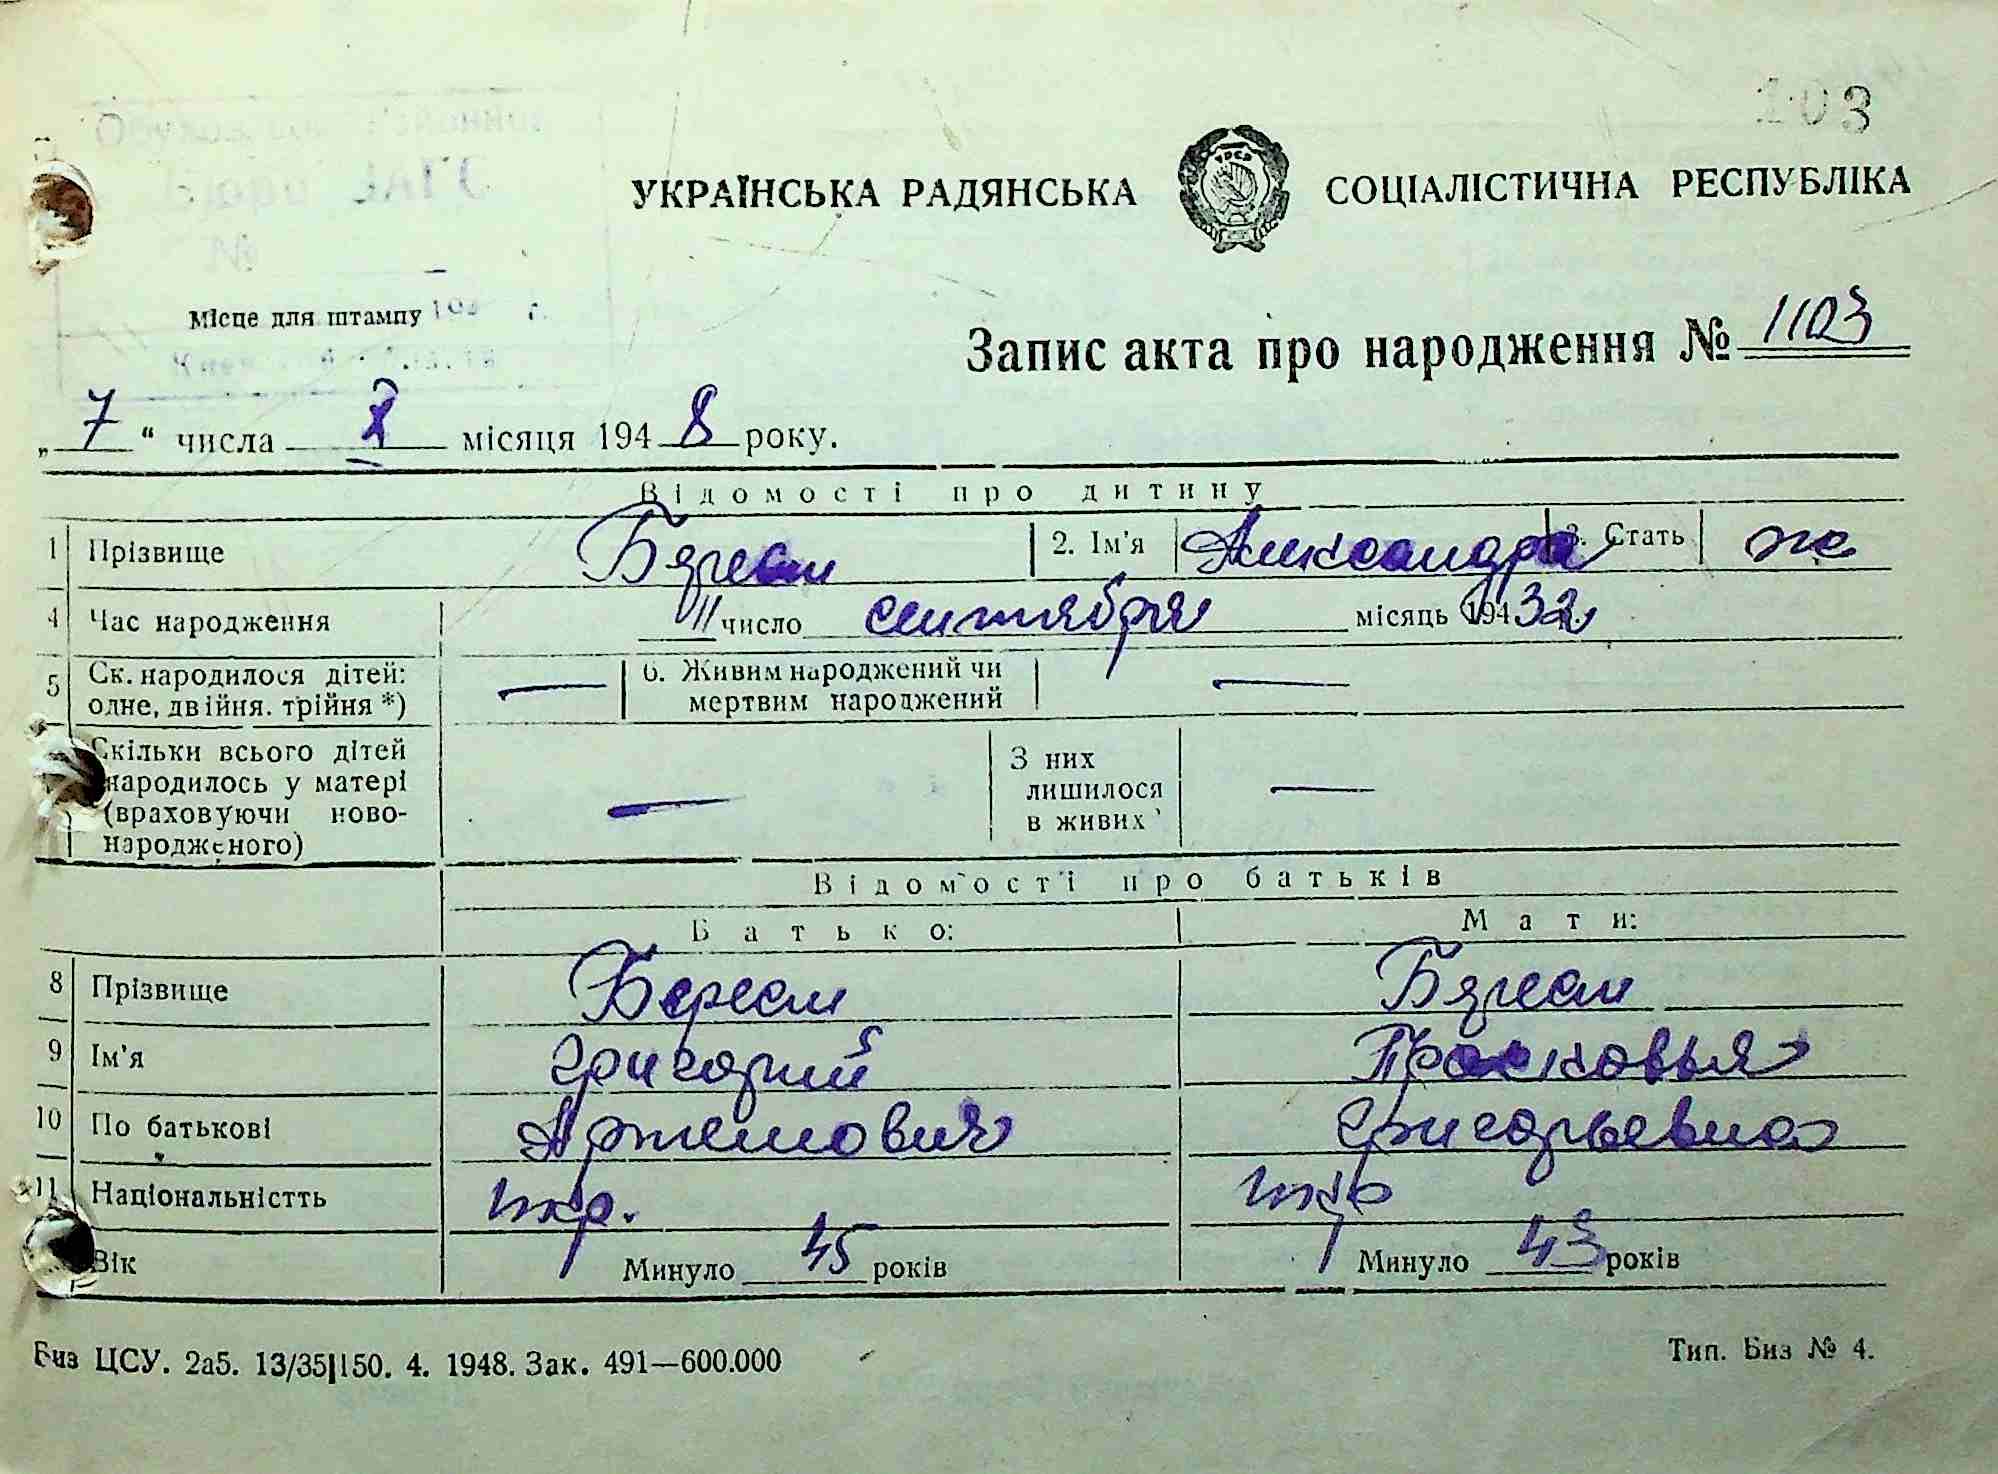 103
УКРАЇНСЬКА РАДЯНСЬКА СОЦІАЛІСТИЧНА РЕСПУБЛІКА
Місце для штампу
Запис акта про народження № 1103
„7“ числа X місяця 1948 року.
Відомості про дитину
1 Прізвище 2. Ім'я Александра 3. Стать ж
4 Час народження 11 число сентября місяць 1932
5 Ск. народилося дітей: одне, двійня. трійня *) — 6. Живим народжений чи мертвим народжений —
Скільки всього дітей народилось у матері (враховуючи ново-народженого) — З них лишилося в живих —
Відомості про батьків
Батько: Мати:
8 Прізвище
9 Ім'я Григорий Прасковья
10 По батькові Артемович Григорьевна
11 Національністть укр. укр
Вік Минуло 45 років Минуло 43 років
Биз ЦСУ. 2а5. 13/35|150. 4. 1948. Зак. 491—600.000 Тип. Биз № 4.